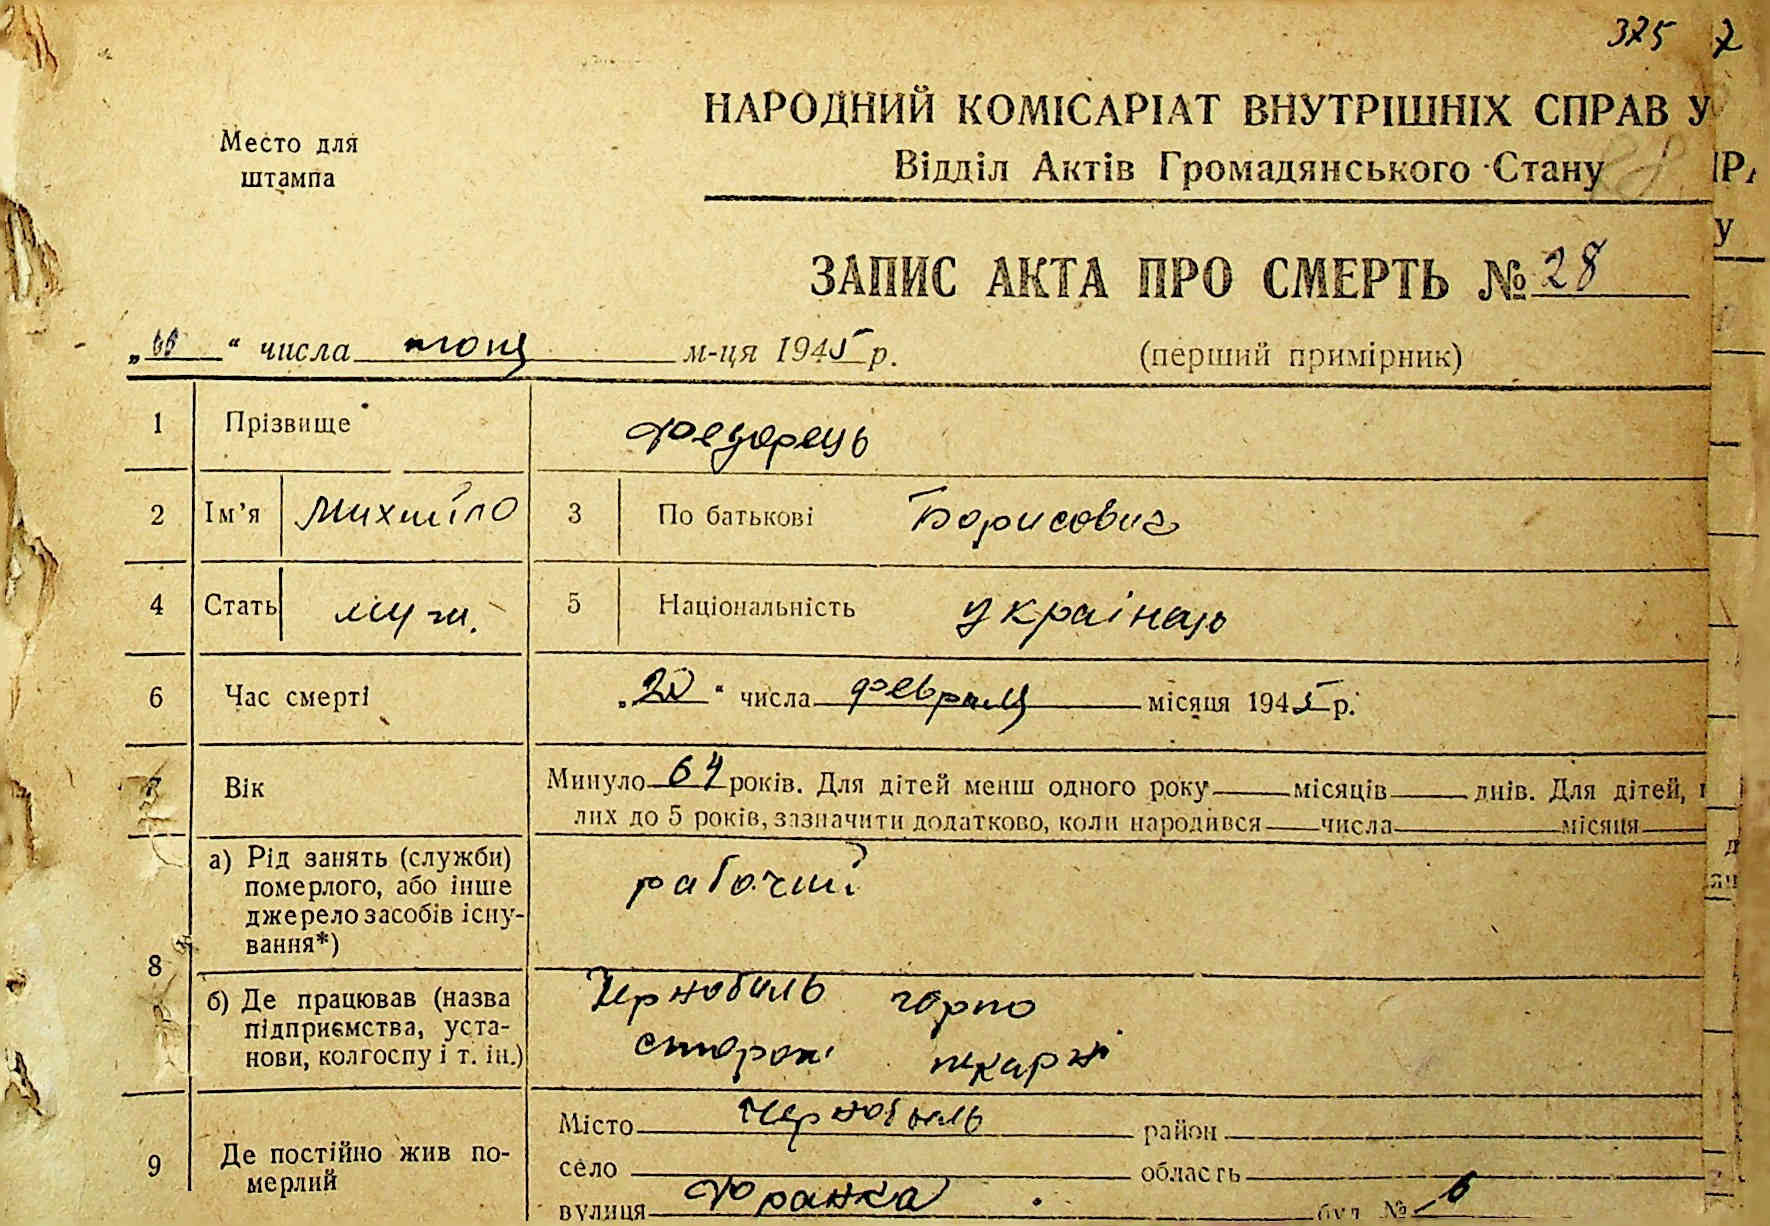 325 7
НАРОДНИЙ КОМІСАРІАТ ВНУТРІШНІХ СПРАВ У
Место для
штампа
Відділ Актів Громадянського Стану
ЗАПИС АКТА ПРО СМЕРТЬ № 28
„ “ числа м-ця 1945 р. (перший примірник)
1 Прізвище Федорець
2 Ім’я Михайло 3 По батькові Борисович
4 Стать муж. 5 Національність українець
6 Час смерті „20“ числа февраля місяця 1945 р.
7 Вік Минуло 64 років. Для дітей менш одного року місяців днів. Для дітей,
лих до 5 років, зазначити додатково, коли народився числа місяця
8 а) Рід занять (служби)
померлого, або інше
джерело засобів існу-
вання*) рабочий
б) Де працював (назва
підприємства, уста-
нови, колгоспу і т. ін.) Чернобиль
сторож пекарні
9 Де постійно жив по-
мерлий
Місто Чернобиль район
село область
вулиця Франка буд. № 6